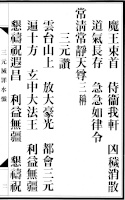 魔王束首　侍衛我軒　凶穢消散
道氣長存　急急如律令
常清常靜天尊三稱
三元讚
雲台山上　放大豪光　都會三元
遍王方　玄中大法王　利益無疆
懇禱祝遐昌　利益無疆